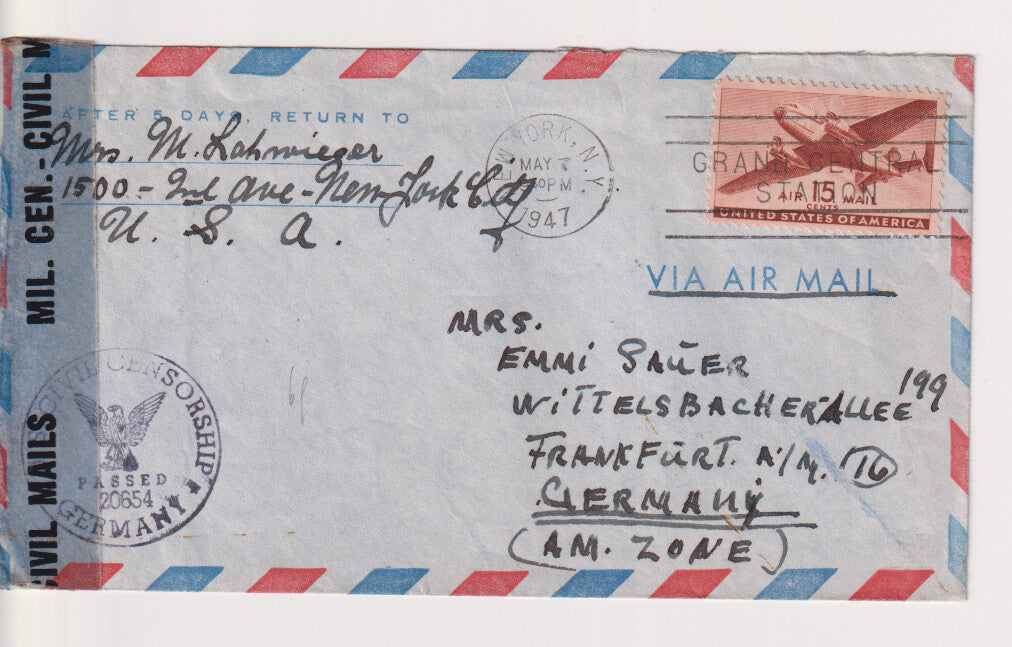 AFTER 5 DAYS, RETURN TO
Mrs. M. Lahwieger
1500 - 2nd Ave - New York City
U. S. A.
NEW YORK, N.Y.
MAY
30PM
1947
GRAND CENTRAL
STATION
AIR 15 MAIL
CENTS
UNITED STATES OF AMERICA
VIA AIR MAIL
MRS.
EMMI SAUER
WITTELSBACHERALLEE 199
FRANKFURT. A/M. (16)
GERMANY
(AM. ZONE)
CIVIL MAILS MIL. CEN.-CIVIL M
CIVIL CENSORSHIP
PASSED
20654
GERMANY